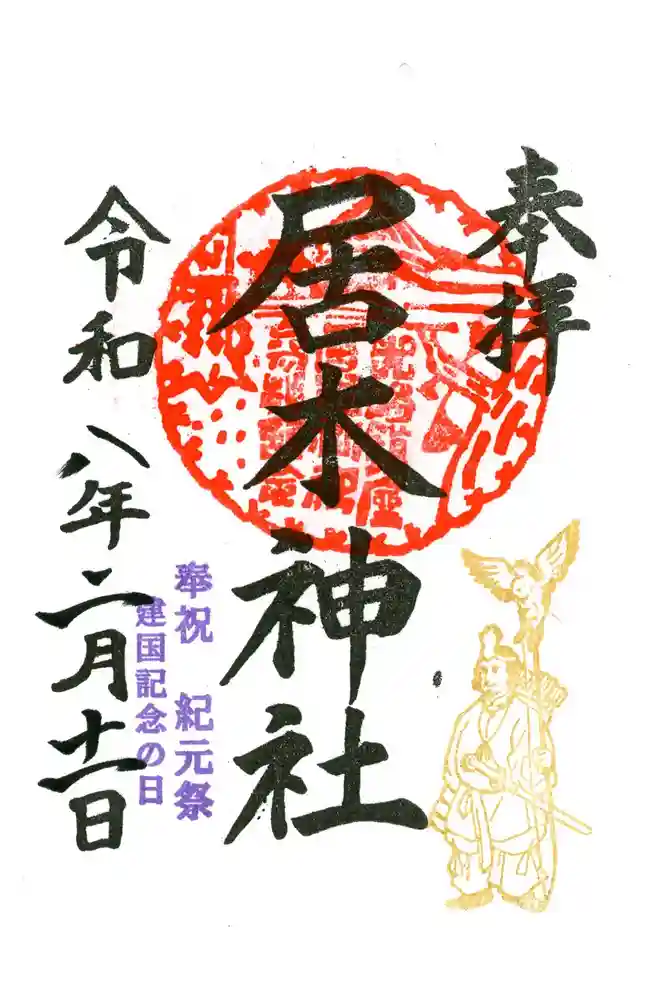 奉拝
居木神社
奉祝　紀元祭
建国記念の日
令和八年二月十一日